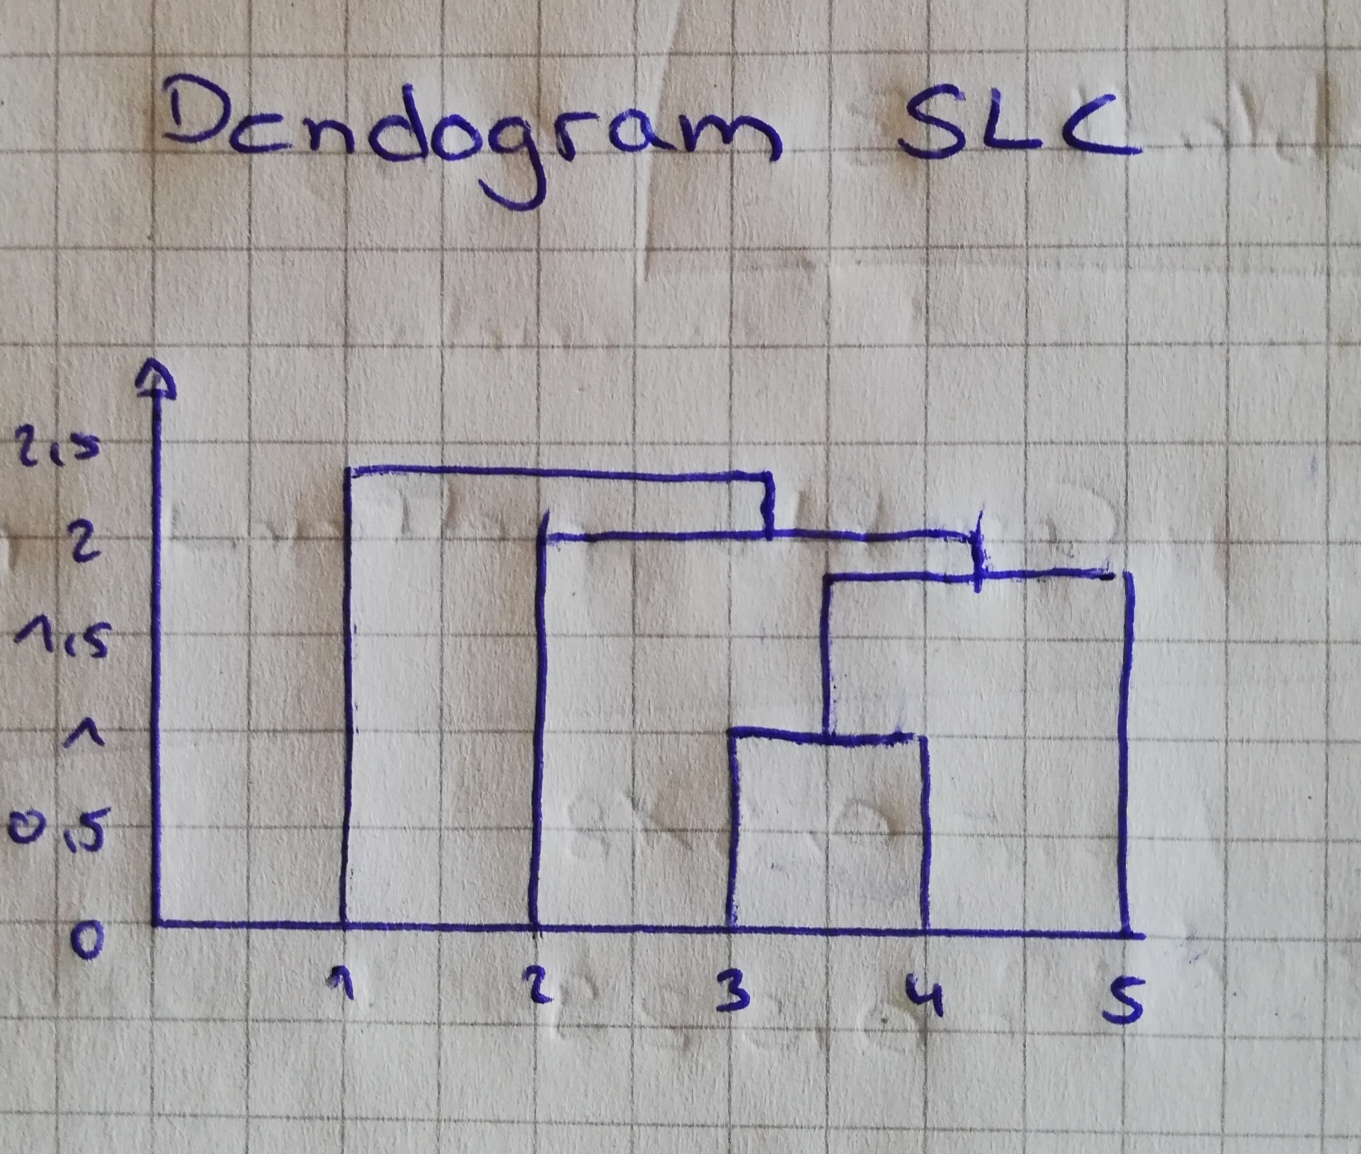 Dendogram SLC
2,5
2
1,5
1
0,5
0
1 2 3 4 5